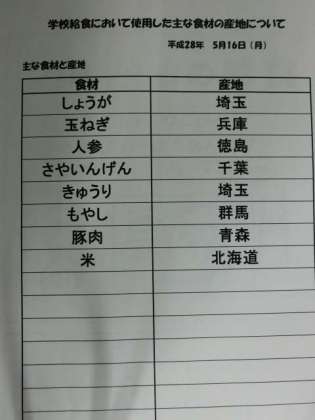 学校給食において使用した主な食材の産地について
平成28年 5月16日（月）
主な食材と産地
食材 産地
しょうが 埼玉
玉ねぎ 兵庫
人参 徳島
さやいんげん 千葉
きゅうり 埼玉
もやし 群馬
豚肉 青森
米 北海道